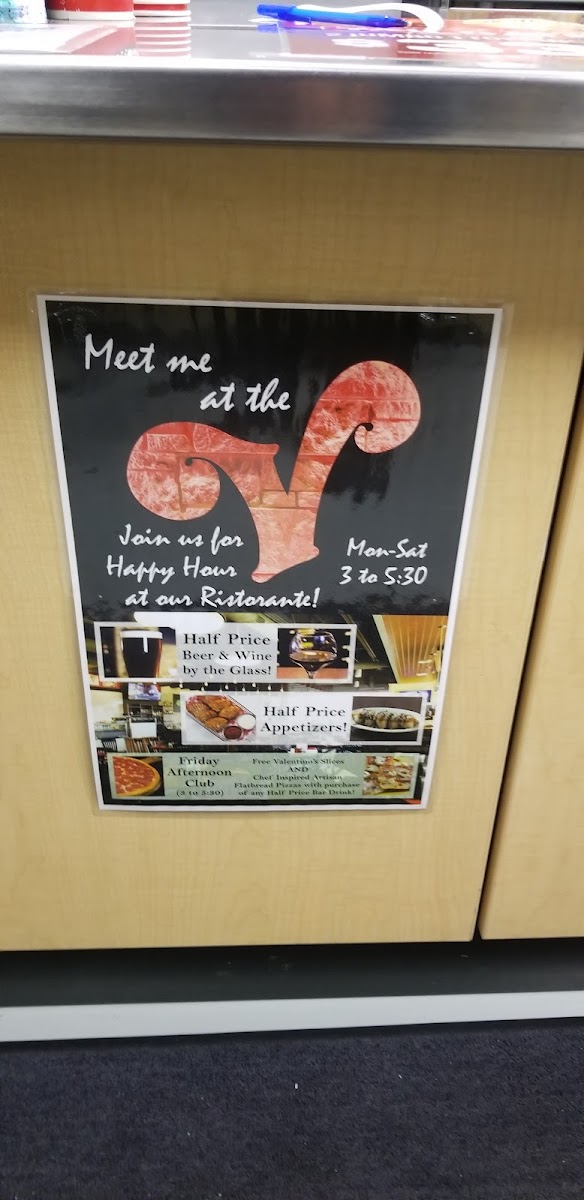 Meet me
at the
V
Join us for
Happy Hour
at our Ristorante!
Mon-Sat
3 to 5:30
Half Price
Beer & Wine
by the Glass!
Half Price
Appetizers!
Friday
Afternoon
Club
(3 to 5:30)
Free Valentino's Slices
AND
Chef Inspired Artisan
Flatbread Pizzas with purchase
of any Half Price Bar Drink!